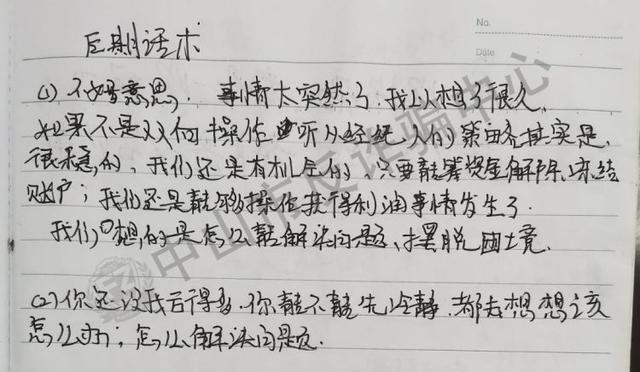 No.
Date
后期话术
(1) 不好意思, 事情太突然了, 我以想了很久,
如果不是双向操作 听从经纪人的策略其实是
很稳的, 我们还是有机会的, 只要能筹资金解除冻结
账户; 我们还是能够操作获得利润事情发生了
我们想的是怎么能解决问题、摆脱困境.
(2) 你还没我亏得多, 你能不能先冷静, 都去想想该
怎么办; 怎么解决问题.
中山市反诈骗中心